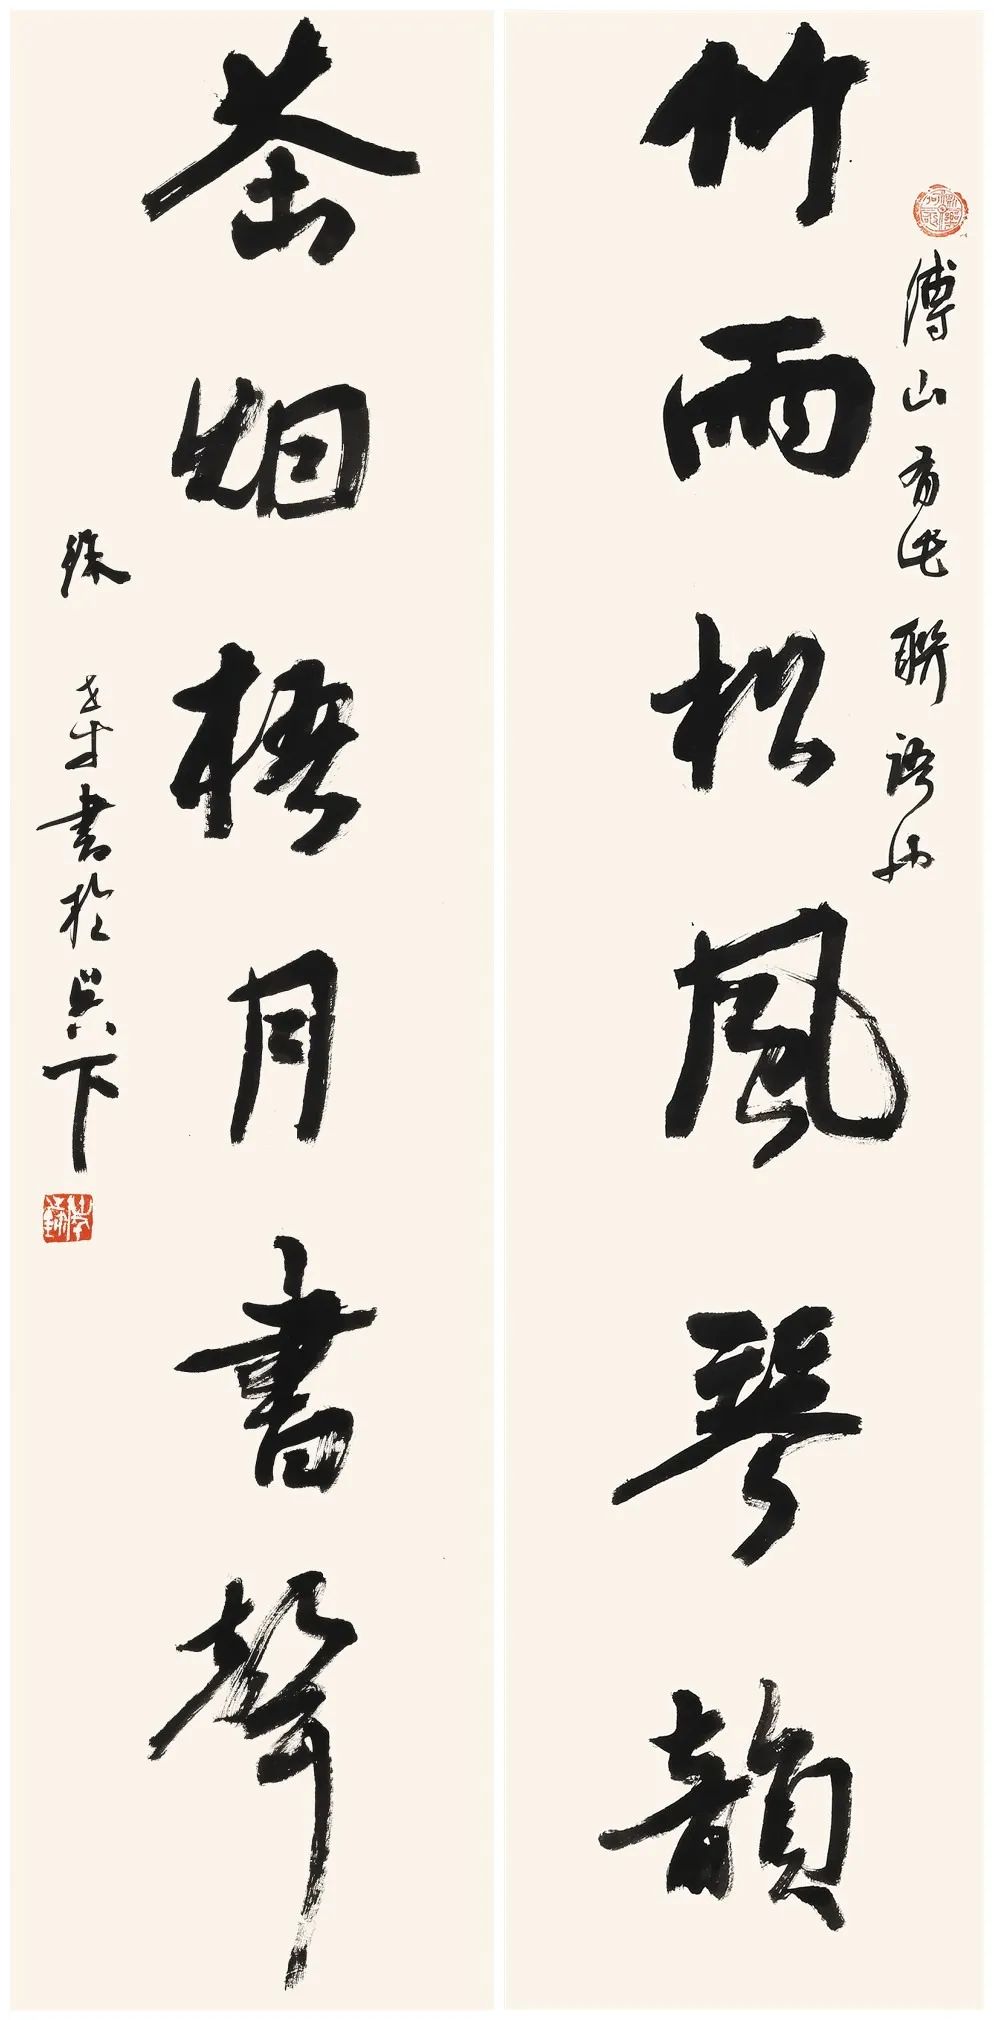 傅山有此聯語
竹雨松風琴韻
茶烟梧月書聲
徐書於吳下